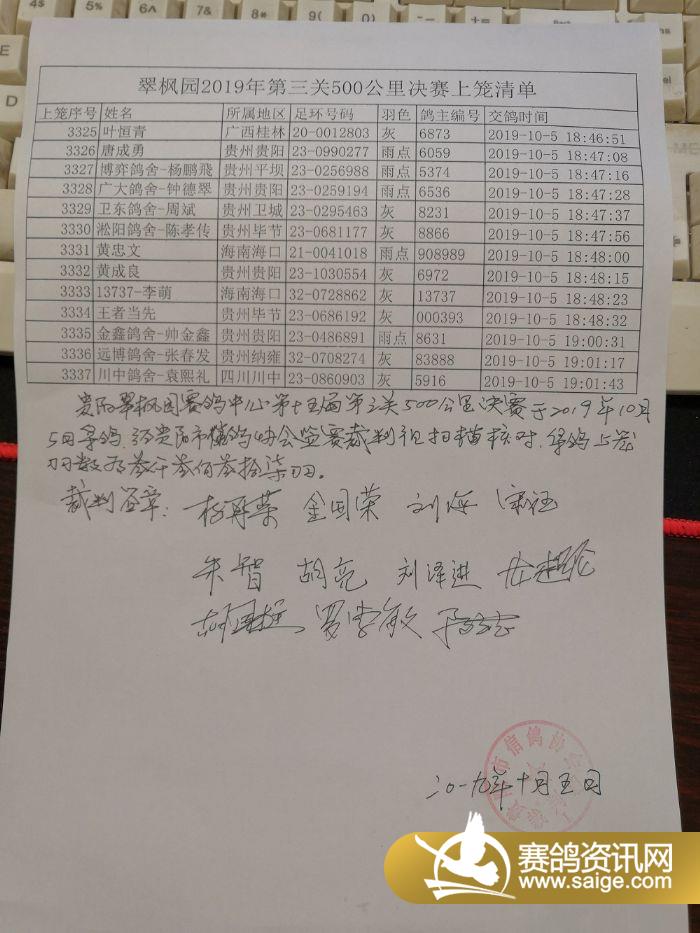 翠枫园2019年第三关500公里决赛上笼清单
上笼序号 姓名 所属地区 足环号码 羽色 鸽主编号 交鸽时间
3325 叶恒青 广西桂林 20-0012803 灰 6873 2019-10-5 18:46:51
3326 唐成勇 贵州贵阳 23-0990277 雨点 6059 2019-10-5 18:47:08
3327 博弈鸽舍-杨鹏飛 贵州平坝 23-0256988 雨点 5374 2019-10-5 18:47:16
3328 广大鸽舍-钟德翠 贵州贵阳 23-0259194 雨点 6536 2019-10-5 18:47:28
3329 卫东鸽舍-周斌 贵州卫城 23-0295463 灰 8231 2019-10-5 18:47:37
3330 淞阳鸽舍-陈孝传 贵州毕节 23-0681177 灰 8866 2019-10-5 18:47:56
3331 黄忠文 海南海口 21-0041018 雨点 908989 2019-10-5 18:48:00
3332 黄成良 贵州贵阳 23-1030554 灰 6972 2019-10-5 18:48:15
3333 13737-李萌 海南海口 32-0728862 灰 13737 2019-10-5 18:48:23
3334 王者当先 贵州毕节 23-0686192 灰 000393 2019-10-5 18:48:32
3335 金鑫鸽舍-帅金鑫 贵州贵阳 23-0486891 雨点 8631 2019-10-5 19:00:31
3336 远博鸽舍-张春发 贵州纳雍 32-0708274 灰 83888 2019-10-5 19:01:17
3337 川中鸽舍-袁熙礼 四川川中 23-0860903 灰 5916 2019-10-5 19:01:43
贵阳翠枫园赛鸽中心第十五届第三关500公里决赛于2019年10月
5日集鸽,经贵阳市信鸽协会监赛裁判组扫描核对,集鸽上笼
羽数为叁仟叁佰叁拾柒羽。
裁判签章: 杨再荣 金国荣 刘海
朱智 胡亮 刘泽进
罗孝敏
市信鸽协会
二〇一九年十月五日
赛鸽资讯网
www.saige.com